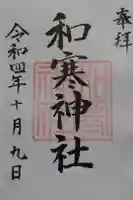 奉拝
和寒神社
令和四年十月九日